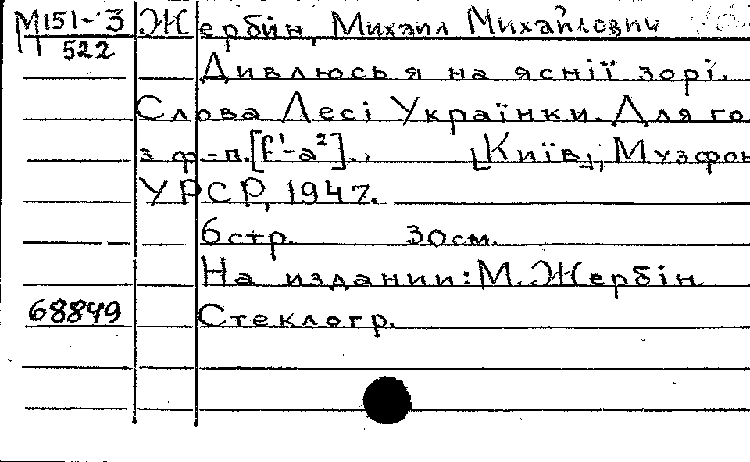 М151-3 Жербін, Михаил Михайлович
522
Дивлюсь я на яснії зорі.
Слова Лесі Українки. Для го
з ф-п. [f¹-a²]., [Київ], Музфон
УРСР, 1947.
6 стр. 30 см.
На издании: М. Жербін
68849 Стеклогр.